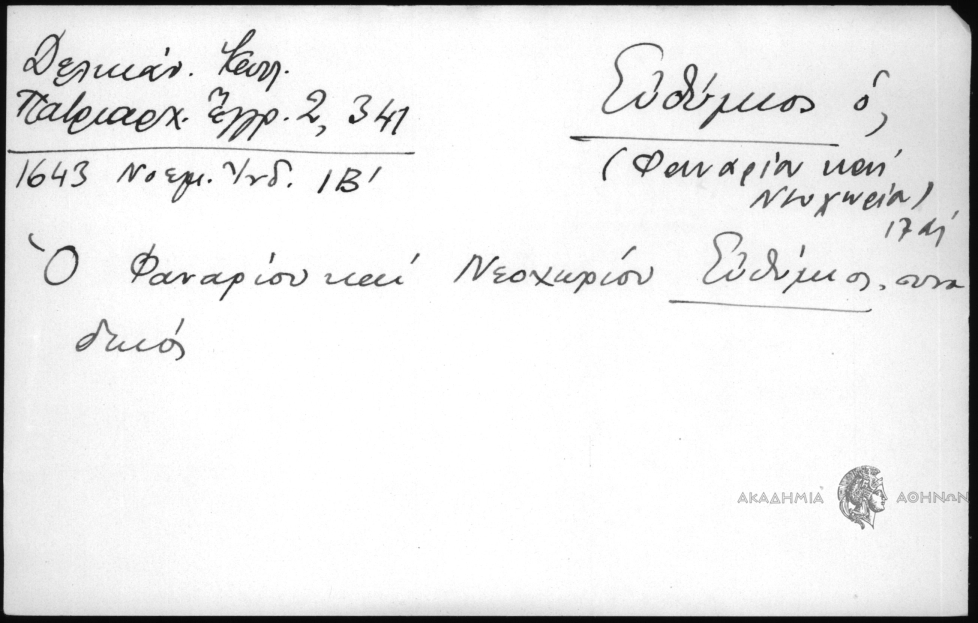 Δελικάν. Καλλ.
Πατριαρχ. Ἔγγρ. 2, 341
Εὐθύμιος ὁ,
1643 Νοεμ. Ἰνδ. ΙΒ'
(Φαναρίου καὶ
Νεοχωρίου)
17 αἰ
Ὁ Φαναρίου καὶ Νεοχωρίου Εὐθύμιος, συνο
δικός
ΑΚΑΔΗΜΙΑ ΑΘΗΝΩΝ